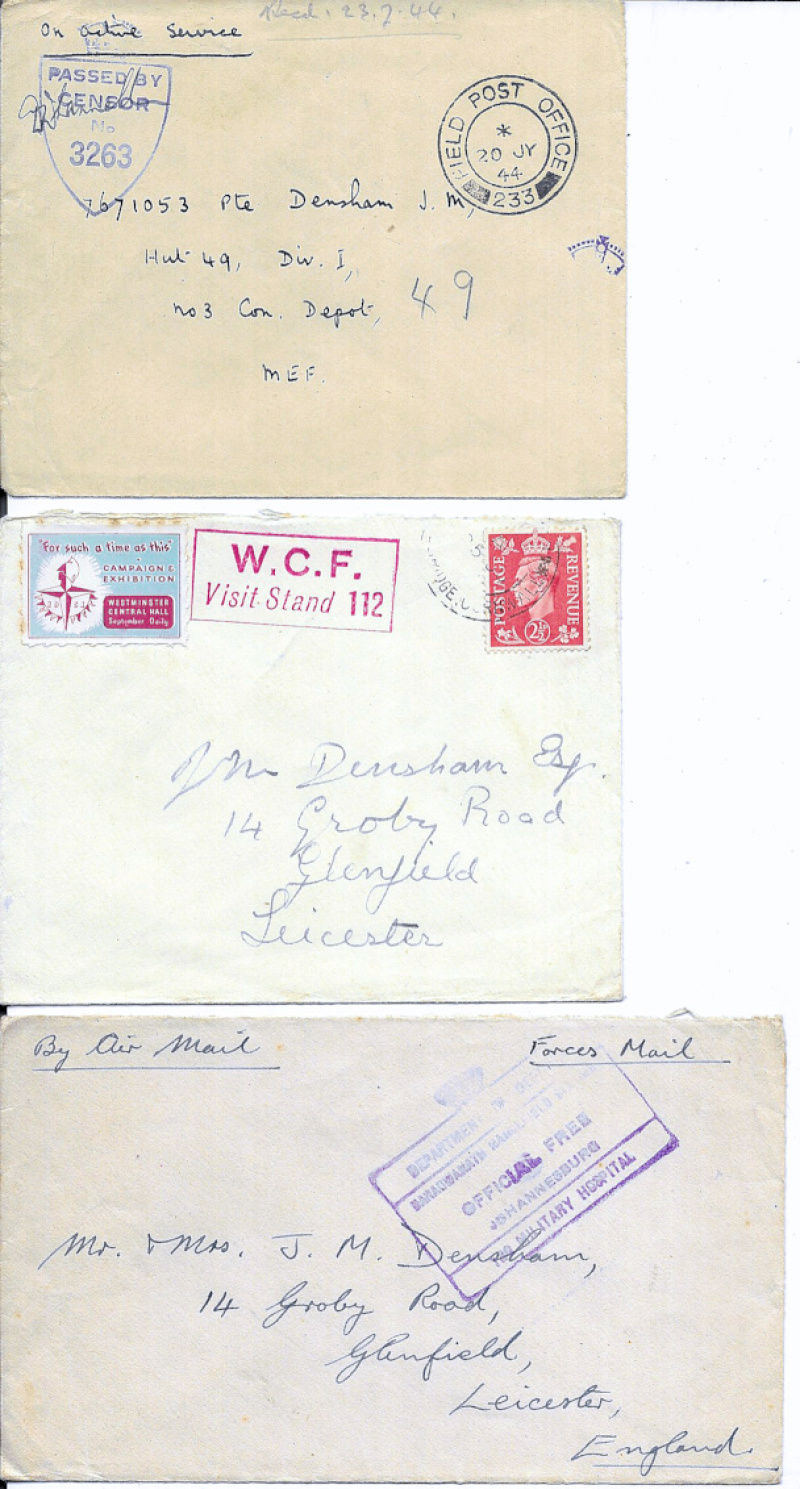 Recd. 23.7.44.
On Active Service
PASSED BY
CENSOR
No
3263
FIELD POST OFFICE
*
20 JY
44
233
7671053 Pte Densham J. M,
Hut 49, Div. I,
No 3 Con. Depot, 49
MEF.
"For such a time as this"
CAMPAIGN &
EXHIBITION
WESTMINSTER
CENTRAL HALL
September Daily
W.C.F.
Visit Stand 112
POSTAGE REVENUE
2½
J M Densham Esq.
14 Groby Road
Glenfield
Leicester
By Air Mail
Forces Mail
DEPARTMENT OF
BARAGWANATH
OFFICIAL FREE
JOHANNESBURG
MILITARY HOSPITAL
Mr. & Mrs. J. M. Densham,
14 Groby Road,
Glenfield,
Leicester,
England.